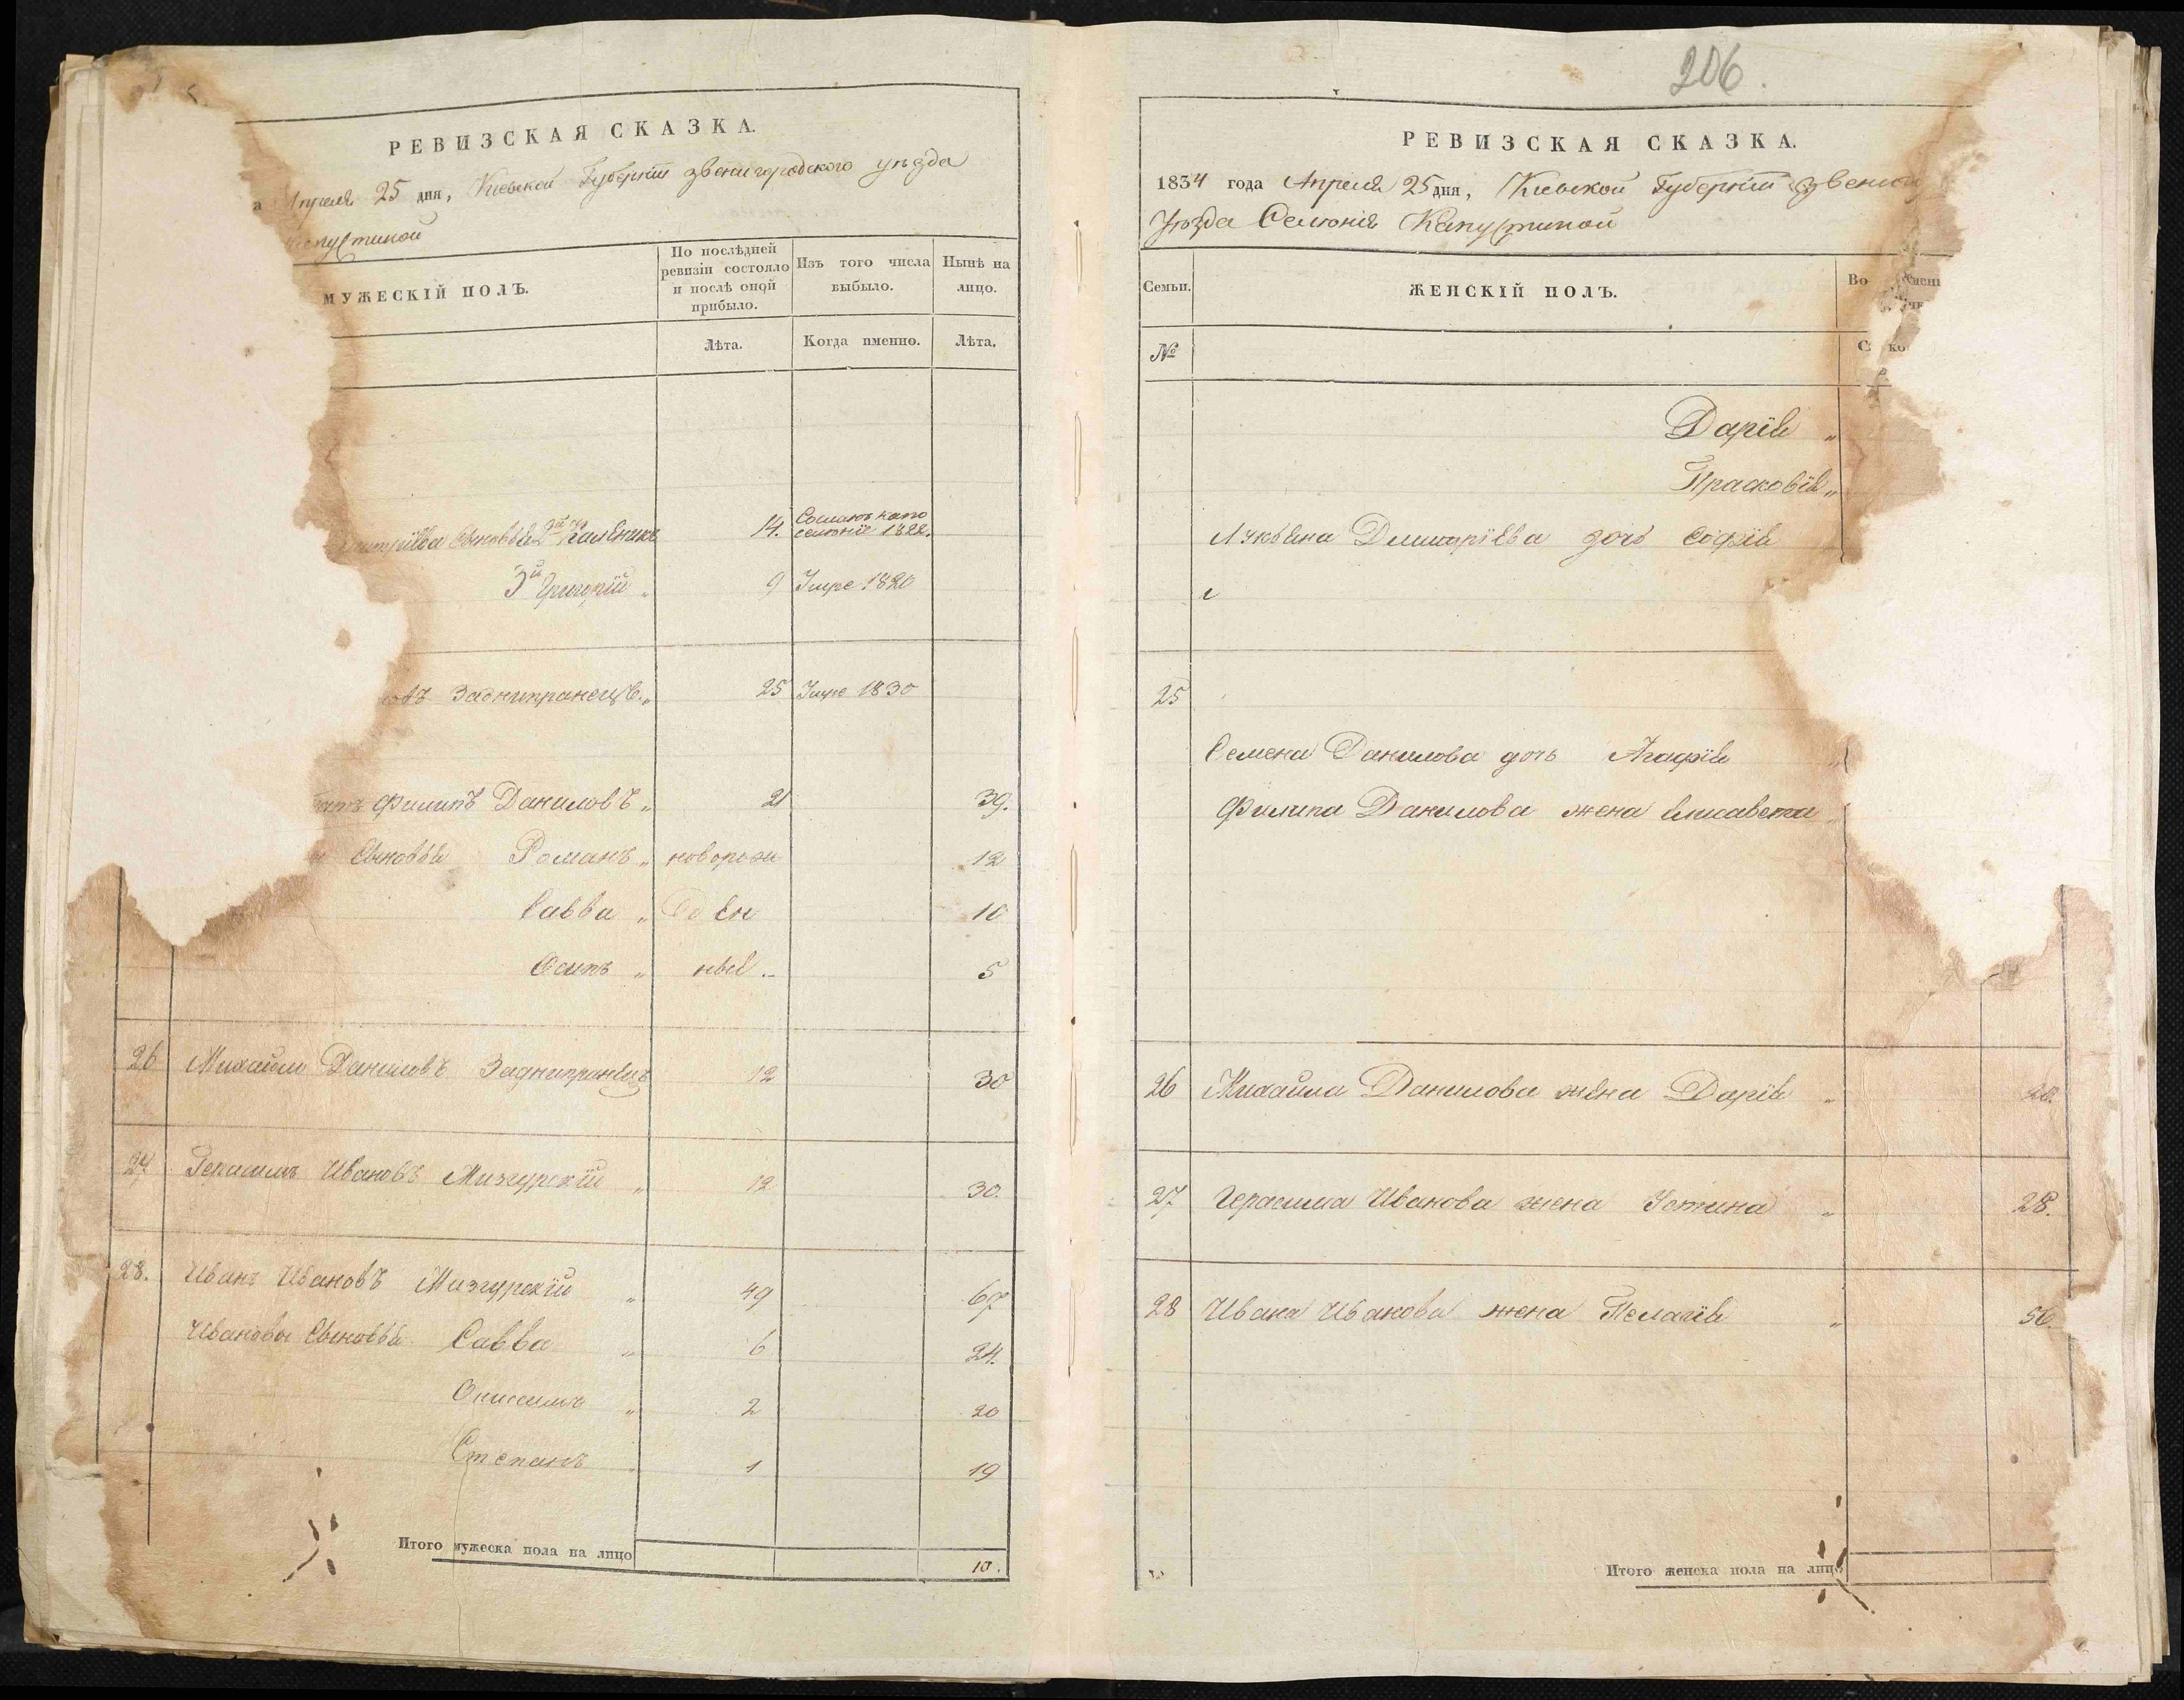 РЕВИЗСКАЯ СКАЗКА.
Апреля 25 дня, Киевской Губернiи звенигородского уѣзда
МУЖЕСКIЙ ПОЛЪ.
По послѣдней ревизiи состояло и послѣ оной прибыло.
Изъ того числа выбыло.
Нынѣ на лицо.
Лѣта.
Когда именно.
Лѣта.
Сыновья 2й 14. 1822.
3й Григорiй „ 9 Умре 1820
Заднипранецъ „ 25 Умре 1830
Филипъ Даниловъ „ 21 39.
Сыновья Романъ „ новорож 12
Савва „ ден 10
Осипъ „ ные „ 5
26 Михайло Даниловъ Заднипранецъ 12 30
27 Герасимъ Ивановъ Мизгурскiй „ 12 30.
28. Иванъ Ивановъ Мизгурскiй „ 49 67
Ивановы Сыновья Савва „ 6 24.
Онисимъ „ 2 20
Степанъ „ 1 19
Итого мужеска пола на лицо 10.
206.
РЕВИЗСКАЯ СКАЗКА.
1834 года Апреля 25 дня, Киевской Губернiи
Уѣзда Селенiя Капустиной
Семьи.
ЖЕНСКIЙ ПОЛЪ.
Во
№
Дарiя „
Прасковiя „
Лукьяна Дмитрiева дочь Софiя
25
Семена Данилова дочь Агафiя „
Филипа Данилова жена Елисавета
26 Михайла Данилова жена Дарiя „
27 Герасима Иванова жена Устина „ 28.
28 Ивана Иванова жена Пелагiя „ 56.
Итого женска пола на лицо